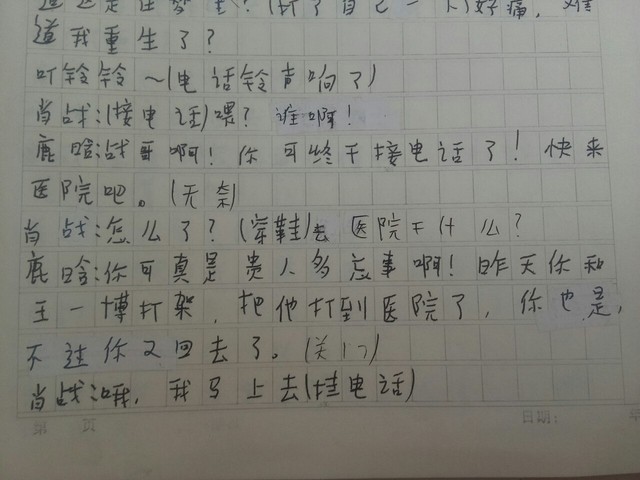 道我重生了?
叮铃铃~(电话铃声响了)
肖战:(接电话)喂? 谁啊!
鹿晗:战哥啊!你可终于接电话了!快来
医院吧。(无奈)
肖战:怎么了?(穿鞋)去医院干什么?
鹿晗:你可真是贵人多忘事啊!昨天你和
王一博打架,把他打到医院了,你也是,
不过你又回去了。(关门)
肖战:哦,我马上去(挂电话)
第 页
日期: